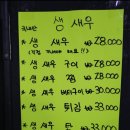 생 새우
* 생 새우 ₩28.000
* 생 새우 구이 ₩28.000
* 생 새우 찜 ₩28.000
* 생 새우 버터구이 ₩30.000
* 생 새우 튀김 ₩33.000
* 생 새우 탕 33.000